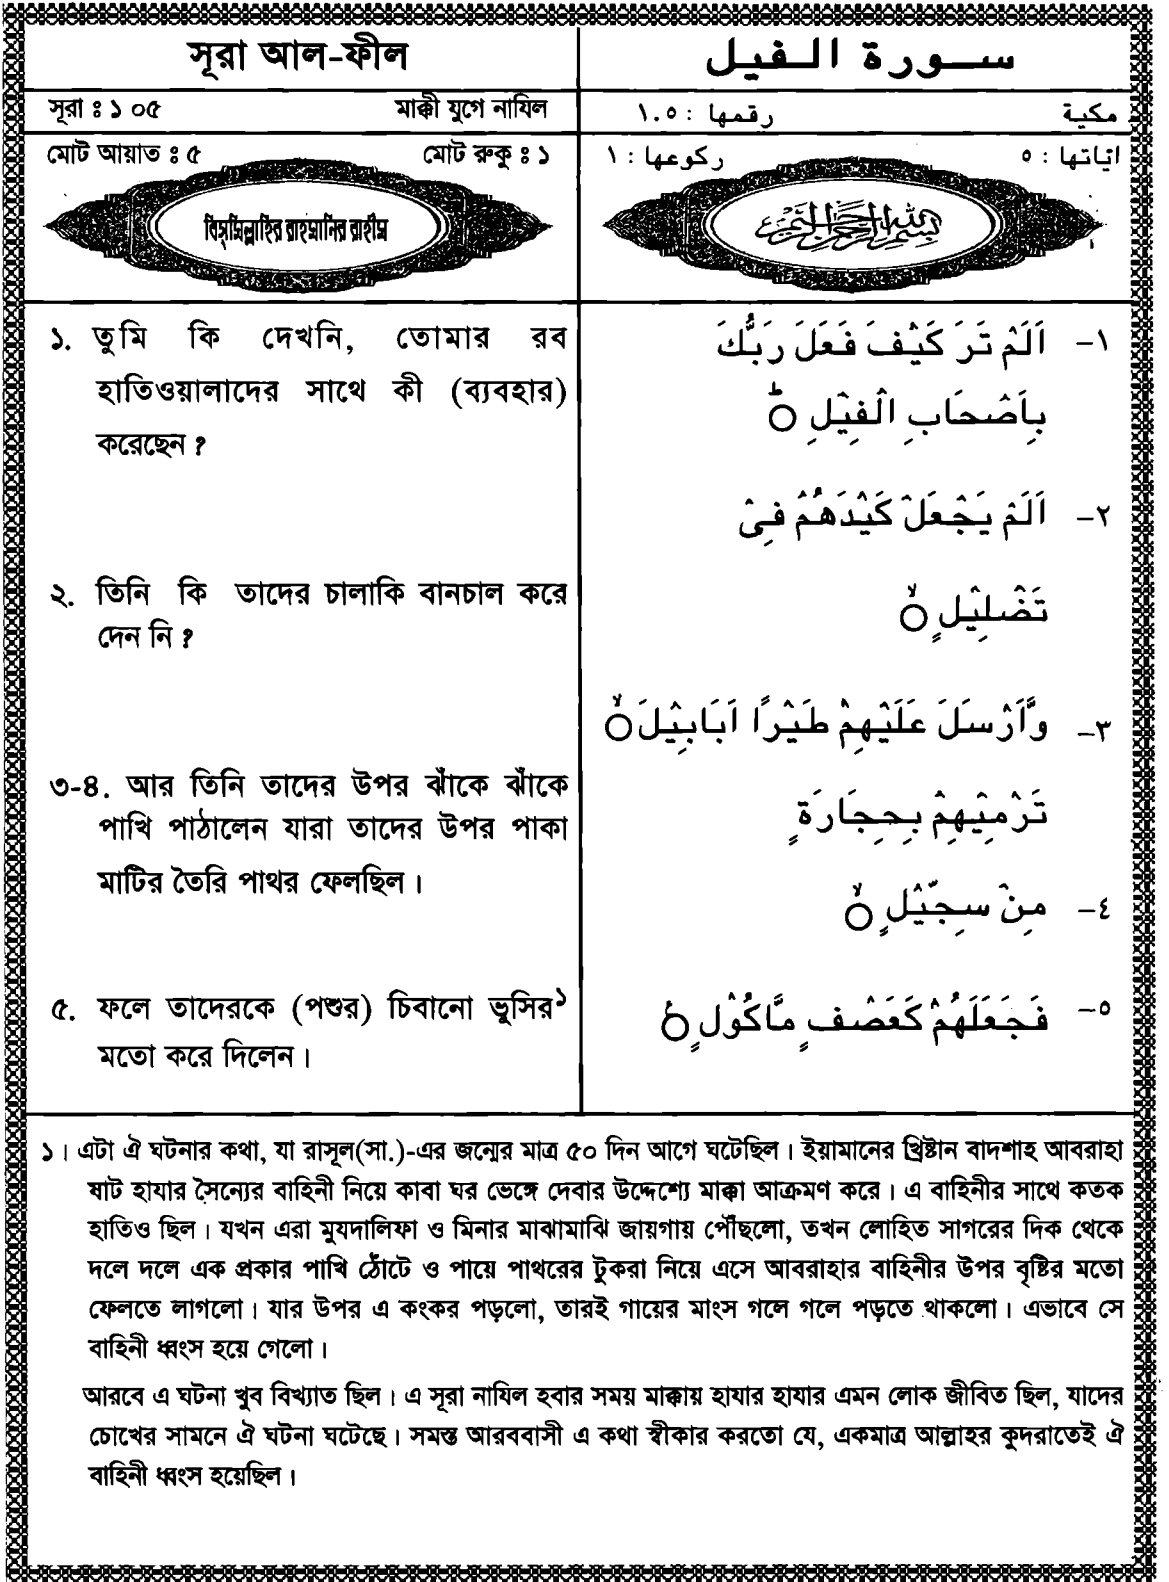 সূরা আল-ফীল
سورة الفيل
সূরা ঃ ১০৫ মাক্কী যুগে নাযিল
مكية رقمها : ١٠٥
মোট আয়াত ঃ ৫ মোট রুকু ঃ ১
اٰياتها : ٥ ركوعها : ١
বিসমিল্লাহির রাহমানির রাহীম
بسم الله الرحمن الرحيم
১. তুমি কি দেখনি, তোমার রব
হাতিওয়ালাদের সাথে কী (ব্যবহার)
করেছেন ?
২. তিনি কি তাদের চালাকি বানচাল করে
দেন নি ?
৩-৪. আর তিনি তাদের উপর ঝাঁকে ঝাঁকে
পাখি পাঠালেন যারা তাদের উপর পাকা
মাটির তৈরি পাথর ফেলছিল।
৫. ফলে তাদেরকে (পশুর) চিবানো ভুসির১
মতো করে দিলেন।
١- اَلَمْ تَرَ كَيْفَ فَعَلَ رَبُّكَ
بِاَصْحَابِ الْفِيْلِ ۝ؕ
٢- اَلَمْ يَجْعَلْ كَيْدَهُمْ فِىْ
تَضْلِيْلٍ ۝ۙ
٣- وَّاَرْسَلَ عَلَيْهِمْ طَيْرًا اَبَابِيْلَ ۝ۙ
تَرْمِيْهِمْ بِحِجَارَةٍ
٤- مِنْ سِجِّيْلٍ ۝ۙ
٥- فَجَعَلَهُمْ كَعَصْفٍ مَّاكُوْلٍ ۝
১। এটা ঐ ঘটনার কথা, যা রাসূল(সা.)-এর জন্মের মাত্র ৫০ দিন আগে ঘটেছিল। ইয়ামানের খ্রিষ্টান বাদশাহ আবরাহা
ষাট হাযার সৈন্যের বাহিনী নিয়ে কাবা ঘর ভেঙ্গে দেবার উদ্দেশ্যে মাক্কা আক্রমণ করে। এ বাহিনীর সাথে কতক
হাতিও ছিল। যখন এরা মুযদালিফা ও মিনার মাঝামাঝি জায়গায় পৌঁছলো, তখন লোহিত সাগরের দিক থেকে
দলে দলে এক প্রকার পাখি ঠোঁটে ও পায়ে পাথরের টুকরা নিয়ে এসে আবরাহার বাহিনীর উপর বৃষ্টির মতো
ফেলতে লাগলো। যার উপর এ কংকর পড়লো, তারই গায়ের মাংস গলে গলে পড়তে থাকলো। এভাবে সে
বাহিনী ধ্বংস হয়ে গেলো।
আরবে এ ঘটনা খুব বিখ্যাত ছিল। এ সূরা নাযিল হবার সময় মাক্কায় হাযার হাযার এমন লোক জীবিত ছিল, যাদের
চোখের সামনে ঐ ঘটনা ঘটেছে। সমস্ত আরববাসী এ কথা স্বীকার করতো যে, একমাত্র আল্লাহর কুদরাতেই ঐ
বাহিনী ধ্বংস হয়েছিল।